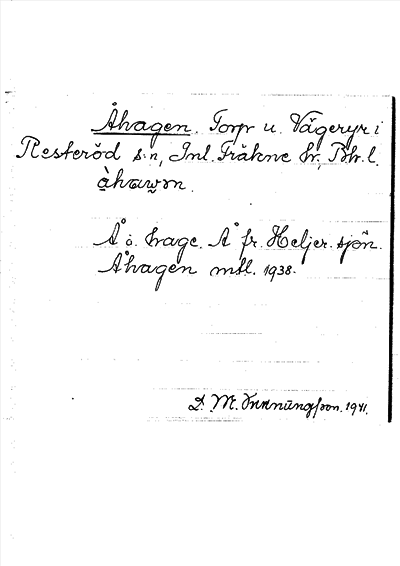 Åhagen. Torp u. Vägeryr i
Resteröd s:n, Inl. Fräkne hr, Boh. l.
Å o. hage. Å fr. Heljer. sjön.
Åhagen mtl. 1938.
D. M. 1941.